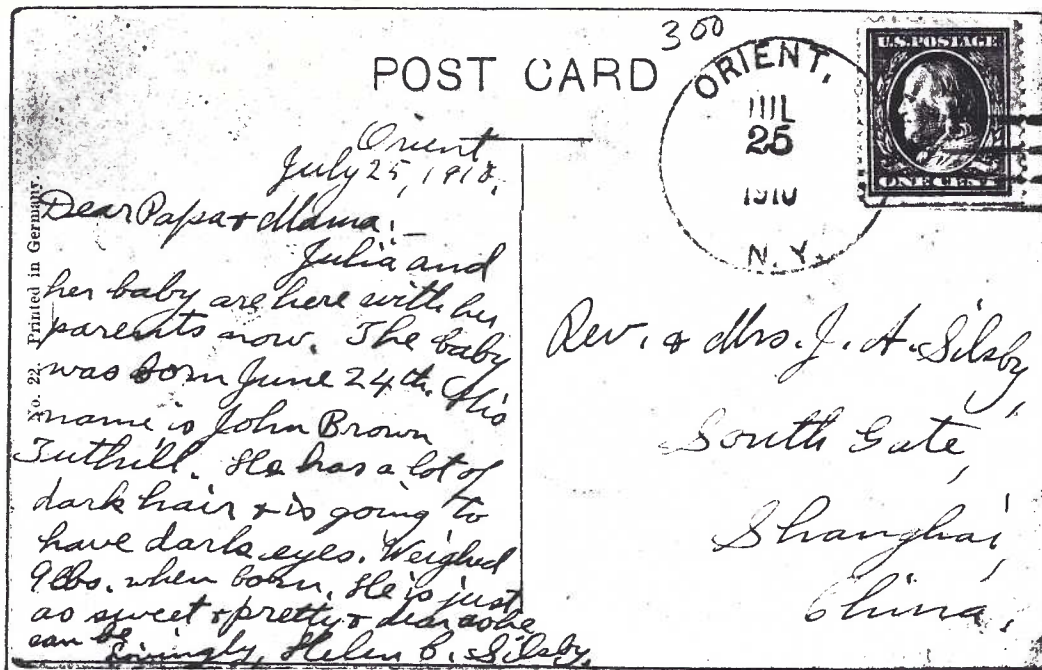 300
POST CARD
ORIENT,
JUL
25
1910
N. Y.
U.S. POSTAGE
ONE CENT
No. 22. Printed in Germany.
Orient,
July 25, 1910.
Dear Papa & Mama:—
Julia and
her baby are here with her
parents now. The baby
was born June 24th. His
name is John Brown
Tuthill. He has a lot of
dark hair & is going to
have dark eyes. Weighed
9 lbs. when born. He is just
as sweet & pretty & dear as he
can be.
Lovingly, Helen B. Silsby.
Rev. & Mrs. J. A. Silsby,
South Gate,
Shanghai,
China.